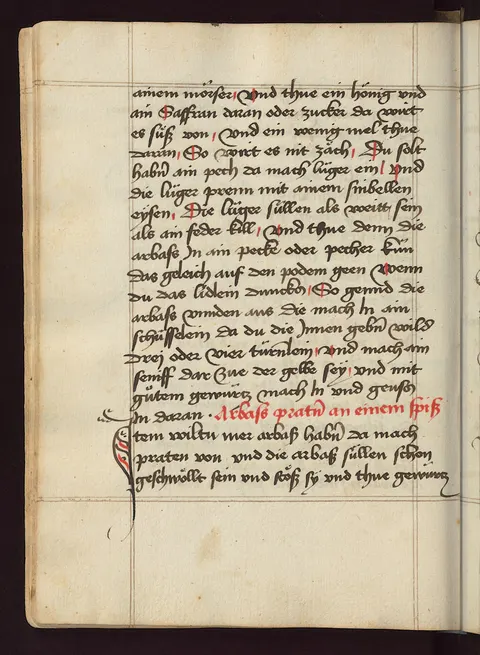 ainem mörser, Vnd thue ein hönig vnd
ain Saffran daran oder zucker da wirt
es süß von, vnd ein wenig mel thue
daran, So wirt es nit zäch, Du solt
habn̄ ain pech da mach lüger ein, Vnd
die lüger prenn mit ainem sinbellen
eysen, Die lüger süllen als weitt sein
als ain feder kill, Vnd thue denn die
arbass Jn ain pecke oder pecher
das geleich auf den podem geen Wenn
du das lidlein, So gennd die
arbass vnnden aus die mach Jn ain
schüsselein da du die Jnnen gebn̄ wild
Drei oder vier türnlein, Vnd mach ain
seniff dar Zue der gelbe sey, vnd mit
gütem gewürtz mach Jn vnd geuss
Jn daran · Arbass pratn̄ an einem spiß
Jtem wiltu wer arbass habn̄ da mach
praten von vnd die arbass süllen schon
geschwöllt sein vnd stöß sy vnd thue gewürtz